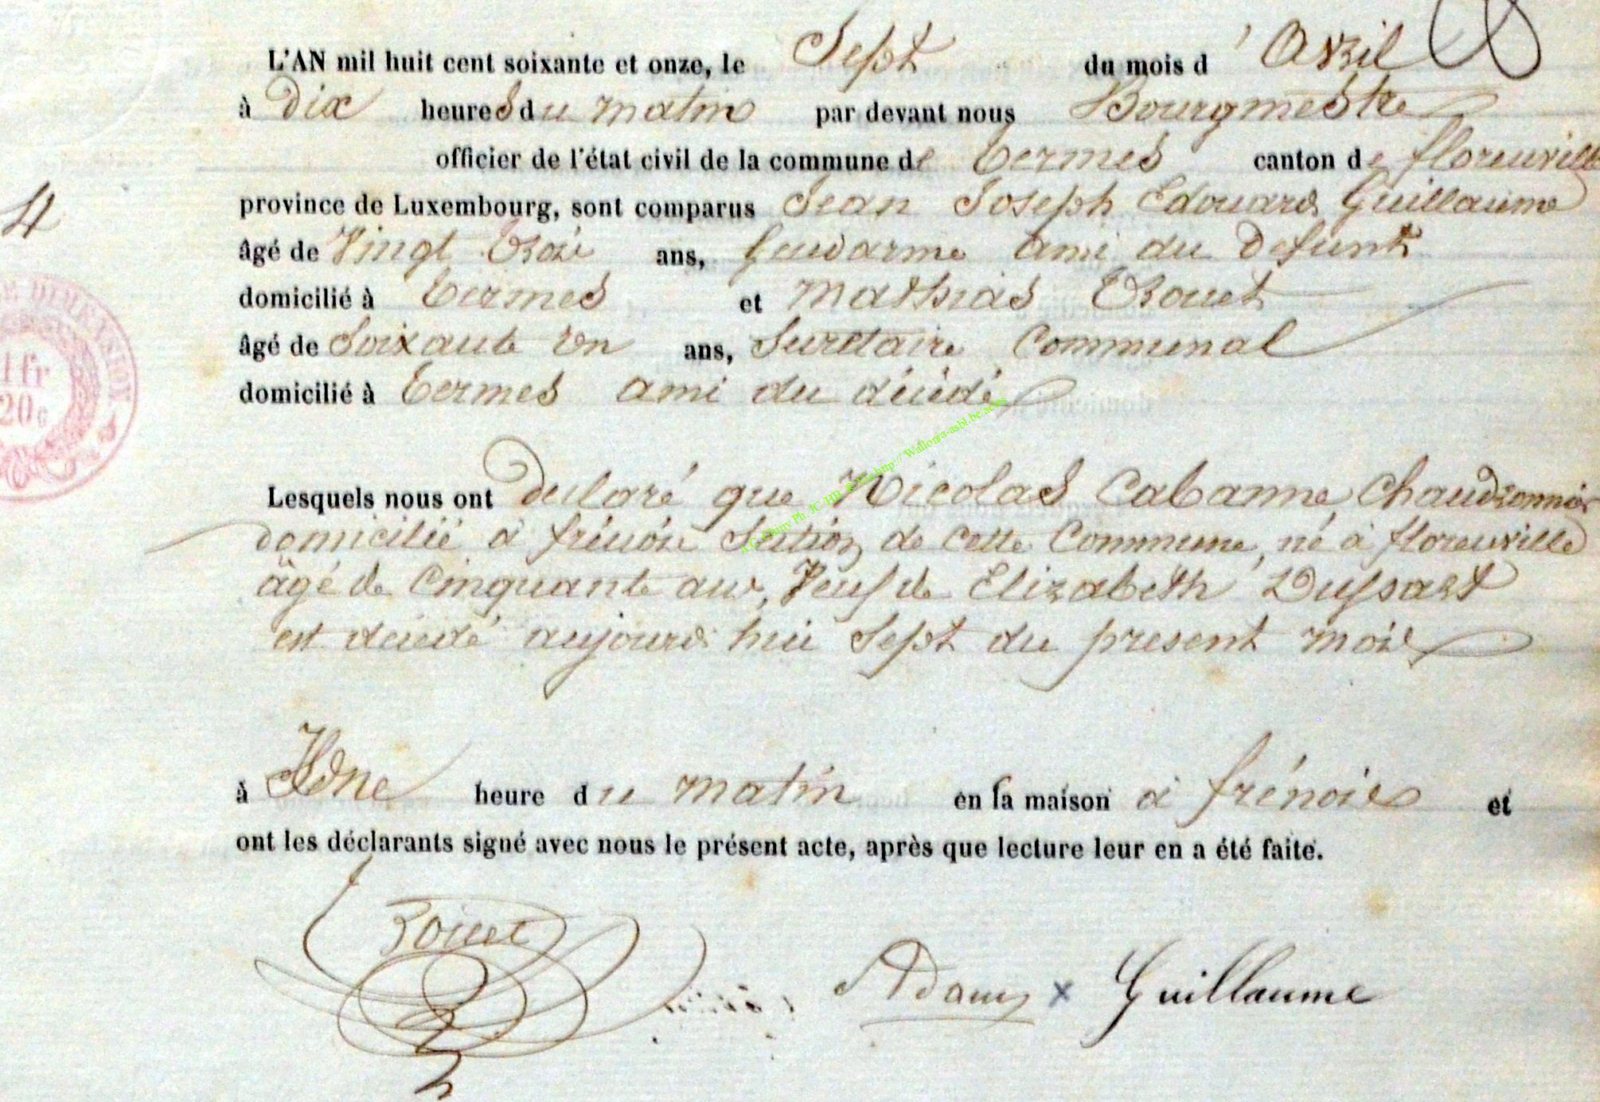 L'AN mil huit cent soixante et onze, le Sept du mois d'Avril
à Dix heures du matin par devant nous Bourgmestre
officier de l'état civil de la commune de termes canton de florenville
4
province de Luxembourg, sont comparus Jean Joseph Edouard Guillaume
âgé de Vingt trois ans, Gendarme ami du defunt
domicilié à termes et Mathias Trouet
âgé de Soixante un ans, Secretaire Communal
domicilié à termes ami du décédé
DIMENSION
1 fr
20c
Lesquels nous ont declaré que Nicolas Cabanne Chaudronnier
domicilié à frénois Section de cette Commune, né à florenville
âgé de Cinquante ans, Veuf de Elizabeth Dussart
est décédé aujourd'hui Sept du present mois
à Une heure du matin en sa maison à frénois et
ont les déclarants signé avec nous le présent acte, après que lecture leur en a été faite.
Adam x Guillaume